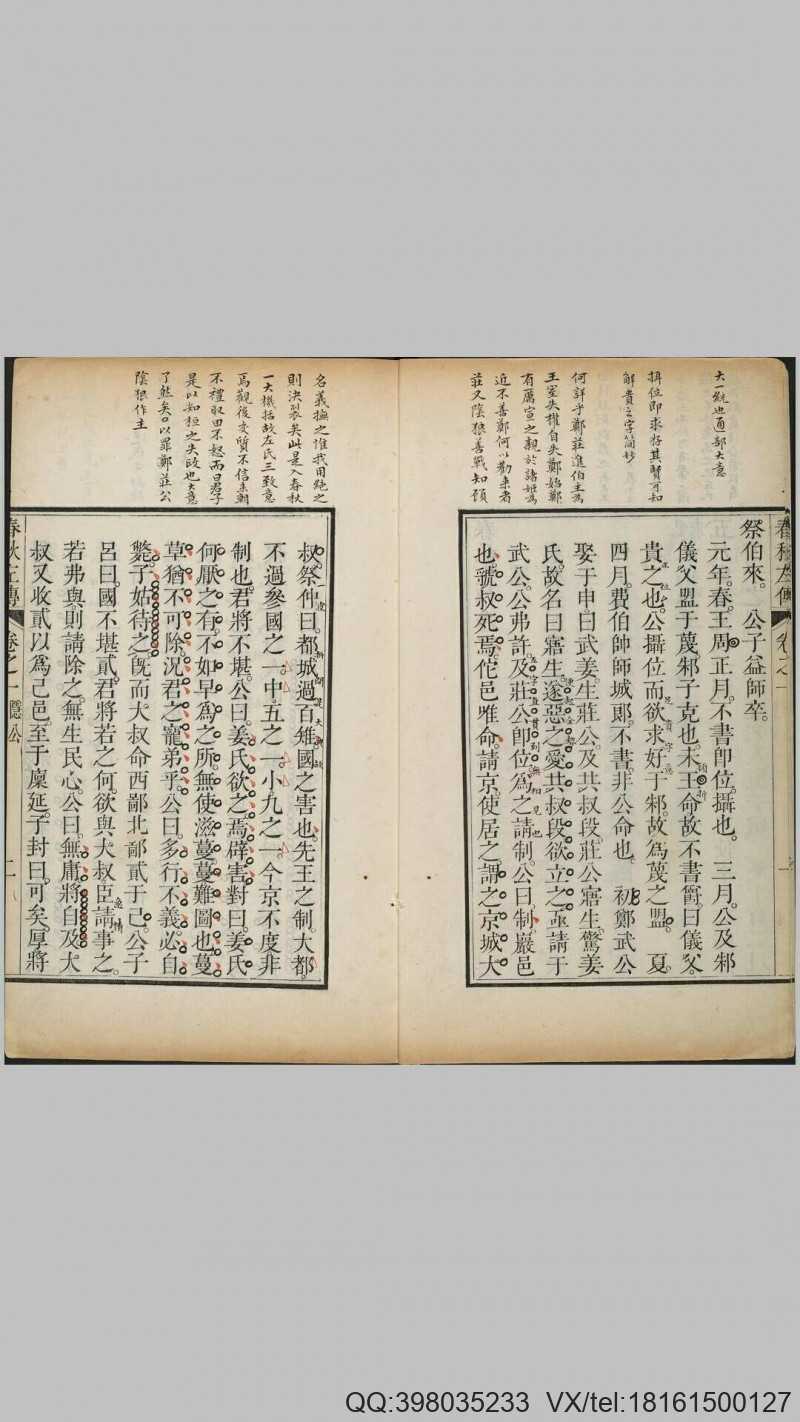 大一統也通部大意
攝位即求好其賢可知
解貴之字簡妙
何詳乎鄭莊進伯主爲
王室失權自失鄭始鄭
有厲宣之親於諸姬爲
近不善鄭何以勸來者
莊又陰狠善戰知頒
祭伯來。公子益師卒。
元年。春。王周正月。不書卽位。攝也。三月。公及邾
儀父盟于蔑。邾子克也。未王命故不書爵。曰儀父。
貴之也。公攝位而欲求好于邾。故爲蔑之盟。夏。
四月。費伯帥師城郎。不書。非公命也。初鄭武公
娶于申。曰武姜。生莊公及共叔段。莊公寤生。驚姜
氏。故名曰寤生。遂惡之。愛共叔段。欲立之。亟請于
武公。公弗許。及莊公卽位。爲之請制。公曰。制。巖邑
也。虢叔死焉。佗邑唯命。請京。使居之。謂之京城大
春秋左傳 卷之一
一
名義撫之惟我用絕之
則決裂矣此是入春秋
一大機括故左氏三致意
焉觀後交質不信來朝
不禮取田不怒而曰君子
是以知桓之失政也大意
了然矣以罪鄭莊公
陰狠作主
叔。祭仲曰。都城過百雉。國之害也。先王之制。大都。
不過參國之一。中。五之一。小。九之一。今京不度。非
制也。君將不堪。公曰。姜氏欲之。焉辟害。對曰。姜氏
何厭之有。不如早爲之所。無使滋蔓。蔓難圖也。蔓
草猶不可除。況君之寵弟乎。公曰。多行不義必自
斃。子姑待之。旣而大叔命西鄙北鄙貳于己。公子
呂曰。國不堪貳。君將若之何。欲與大叔臣請事之。
若弗與則請除之。無生民心。公曰。無庸。將自及。大
叔又收貳以爲己邑。至于廩延。子封曰。可矣。厚將
春秋左傳 卷之一 隱公
二
QQ:398035233 VX/tel:18161500127